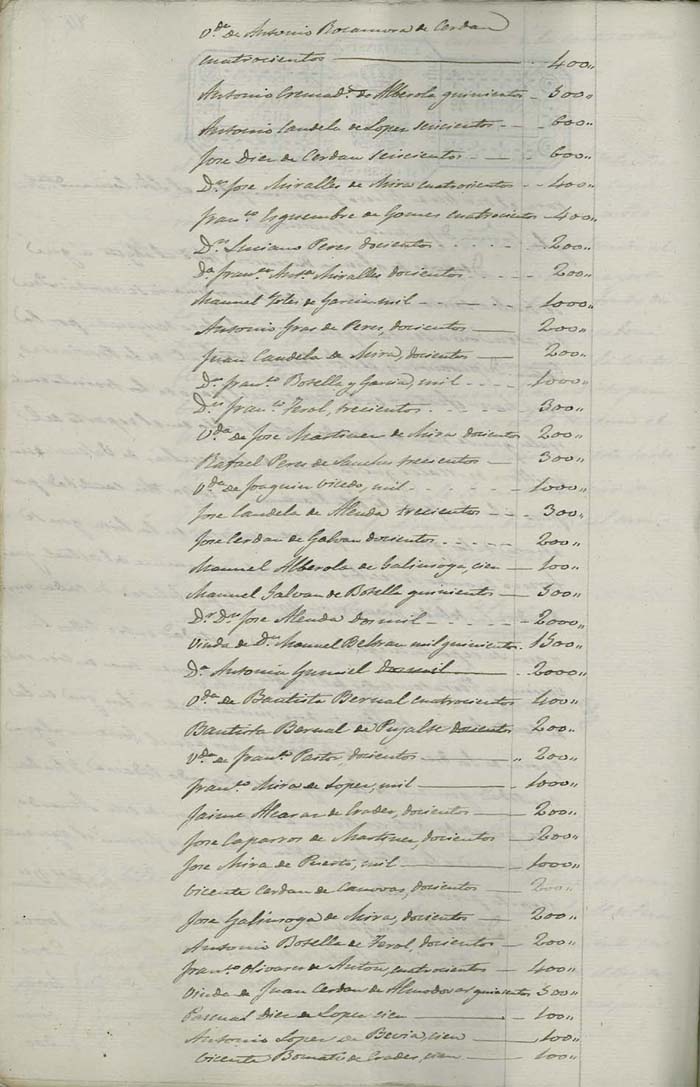 V.da de Antonio Rocamora de Cerdan
cuatrocientos 400,,
Antonio Cremad.s de Alberola quinientos 500,,
Antonio Candela de Lopez seicientos 600,,
Jose Diez de Cerdan seicientos 600,,
D.n Jose Miralles de Mira cuatrocientos 400,,
Fran.co Esquembre de Gomes cuatrocientos 400,,
D.n Luciano Peres docientos 200,,
D.a Fran.ca Miralles docientos 200,,
Manuel de Garcia mil 1000,,
Antonio Gras de Peres, docientos 200,,
Juan Candela de Mira, docientos 200,,
D.n Fran.co Botella y Garcia, mil 1000,,
D.n Fran.co Terol, trecientos 300,,
V.da de Jose Martinez de Mira docientos 200,,
Rafael Peres de Sanches trescientos 300,,
V.da de Joaquin Vicedo, mil 1000,,
Jose Candela de Alenda trecientos 300,,
Jose Cerdan de Galvan docientos 200,,
Manuel Alberola de Galinsoga, cien 100,,
Manuel Galvan de Botella quinientos 500,,
D.r D.n Jose Alenda dos mil 2000,,
Viuda de D.n Manuel Beltran mil quinientos 1500,,
D.n Antonio dos mil 2000,,
V.da de Bautista Bernal cuatrocientos 400,,
Bautista Bernal de Pujalte docientos 200,,
V.da de Fran.co Pastor, docientos 200,,
Fran.co Mira de Lopez, mil 1000,,
Jaime Alcaraz de Crades, docientos 200,,
Jose Caparros de Martinez, docientos 200,,
Jose Mira de Puerto, mil 1000,,
Vicente Cerdan de Canovas, docientos 200,,
Jose Galinsoga de Mira, docientos 200,,
Antonio Botella de Terol, docientos 200,,
Fran.co Olivares de Anton, cuatrocientos 400,,
Viuda de Juan Cerdan de Almodovar quinientos 500,,
Pascual Diez de Lopez cien 100,,
Antonio Lopez de Bevia, cien 100,,
Vicente de Crades, cien 100,,